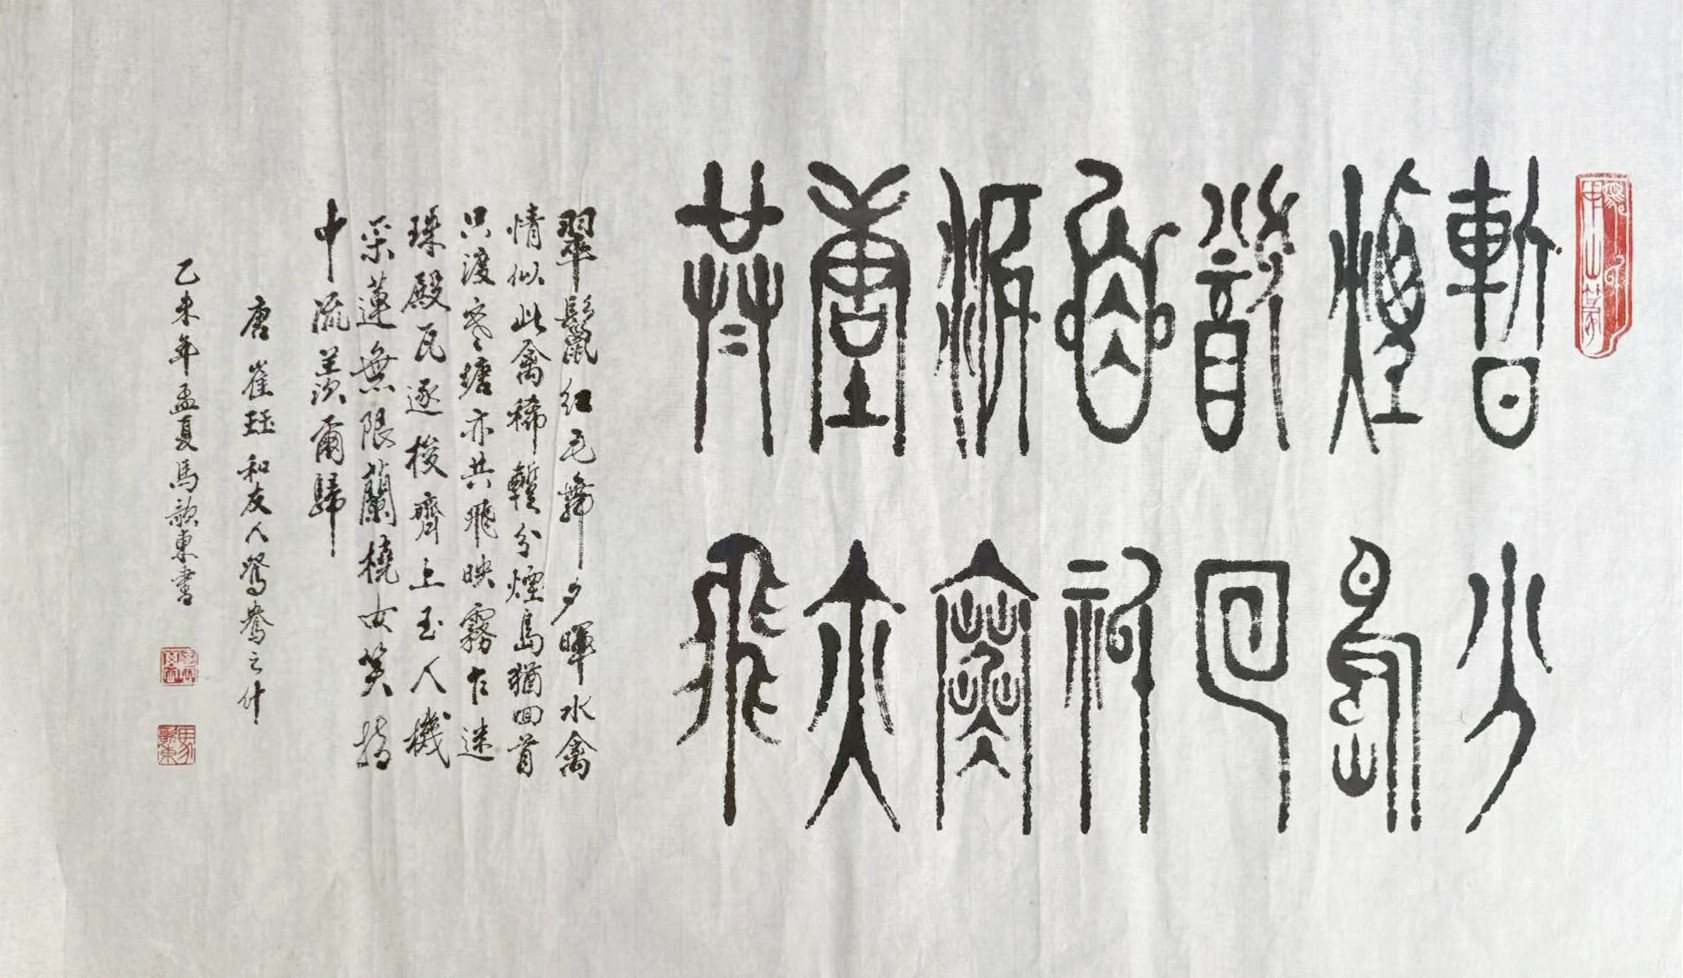 暫分
煙島
猶回
首祇
渡寒
塘亦
共飛
翠鬣紅毛舞夕暉水禽
情似此禽稀暫分煙島猶回首
只渡寒塘亦共飛映霧乍迷
珠殿瓦逐梭齊上玉人機
采蓮無限蘭橈女笑指
中流羨爾歸
唐崔珏和友人鴛鴦之什
乙未年孟夏馬歆東書